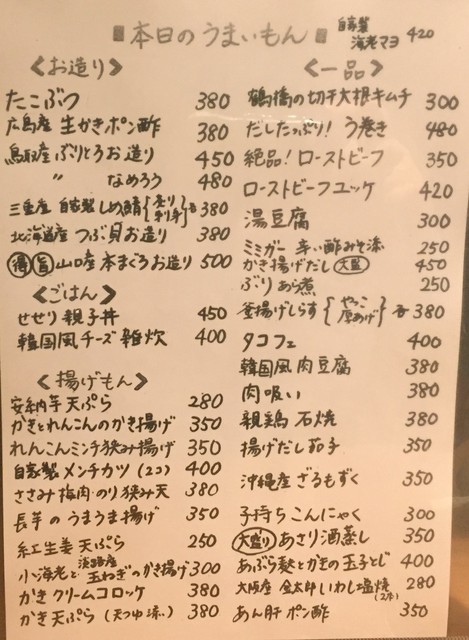 本日のうまいもん
自家製
海老マヨ 420
<お造り>
たこぶつ 380
広島産 生かきポン酢 380
鳥取産 ぶりとろお造り 450
〃 なめろう 480
三重産 自家製 しめ鯖 380
北海道産 つぶ貝お造り 380
得 旨 山口産 本まぐろお造り 500
<ごはん>
せせり親子丼 450
韓国風チーズ雑炊 400
<揚げもん>
安納芋 天ぷら 280
かきとれんこんのかき揚げ 350
れんこんミンチ狭み揚げ 350
自家製 メンチカツ(2コ) 400
ささみ梅肉・のり狭み天 380
長芋のうまうま揚げ 350
紅生姜 天ぷら 250
小海老と淡路産玉ねぎのかき揚げ 300
かきクリームコロッケ 380
かき天ぷら(天つゆ添) 380
<一品>
鶴橋の切干大根キムチ 300
だしたっぷり!う巻き 480
絶品!ローストビーフ 350
ローストビーフユッケ 420
湯豆腐 300
ミミガー 辛い酢みそ添 250
かき揚げだし 大盛 450
ぶりあら煮 250
釜揚げしらす{やっこ 厚あげ}各380
タコフェ 400
韓国風肉豆腐 380
肉吸い 380
親鶏 石焼 380
揚げだし茄子 350
沖縄産 ざるもずく 350
子持ちこんにゃく 300
大盛り あさり酒蒸し 350
あぶら麩とかきの玉子とじ 400
大阪産 金太郎いわし塩焼(2本) 280
あん肝ポン酢 350